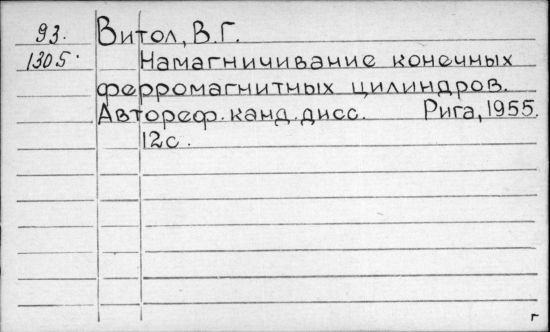 93. Витол, В.Г.
1305. Намагничивание конечных
ферромагнитных цилиндров.
Автореф. канд. дисс. Рига, 1955.
12с.
г